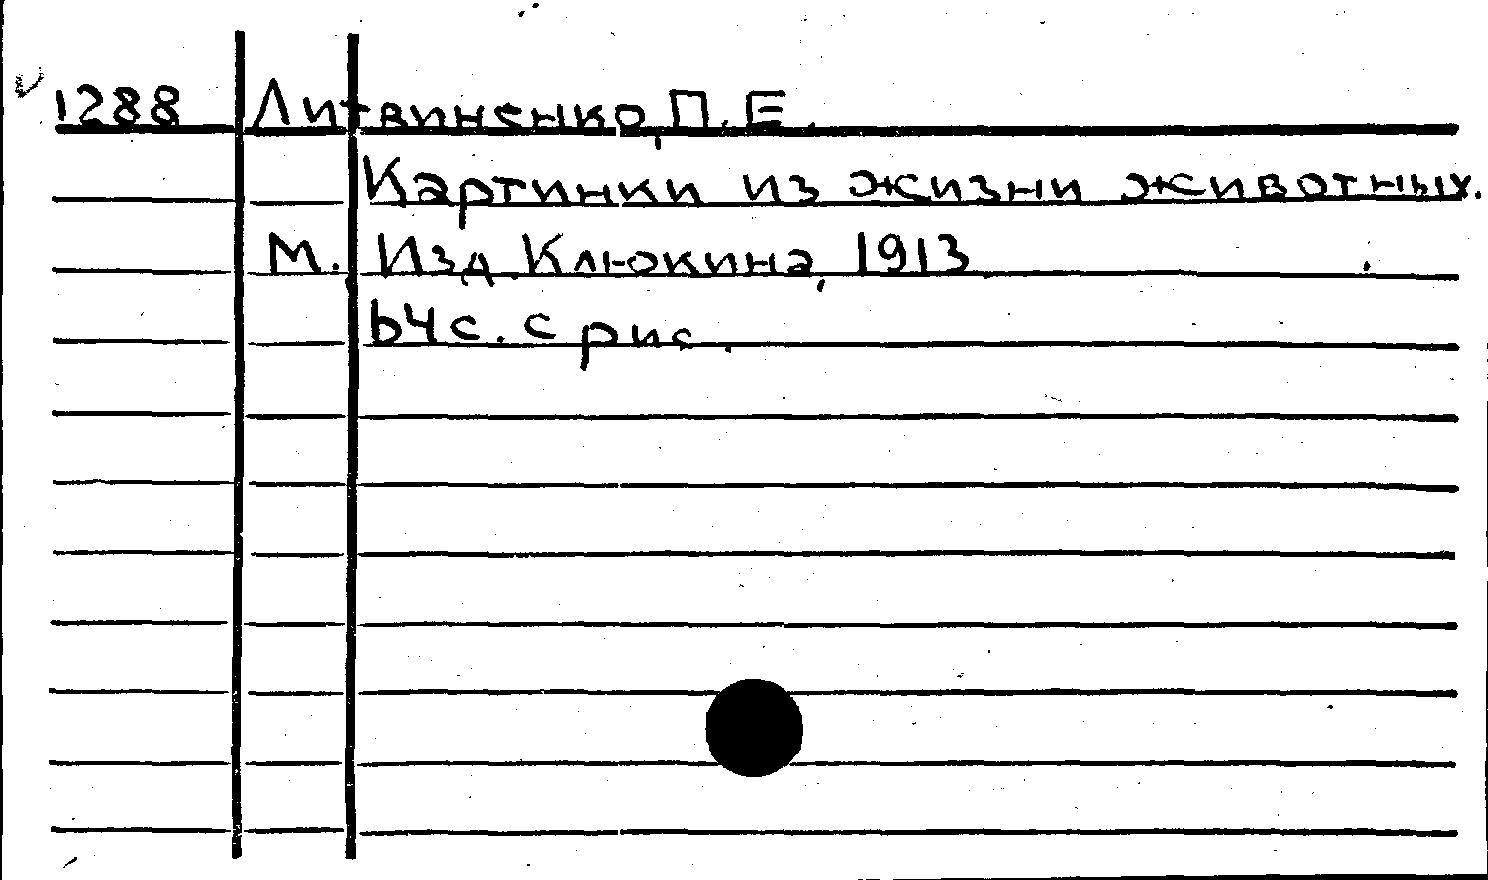 1288 Литвиненко, П. Е.
Картинки из жизни животных.
М. Изд. Клюкина, 1913
64 с. с рис.